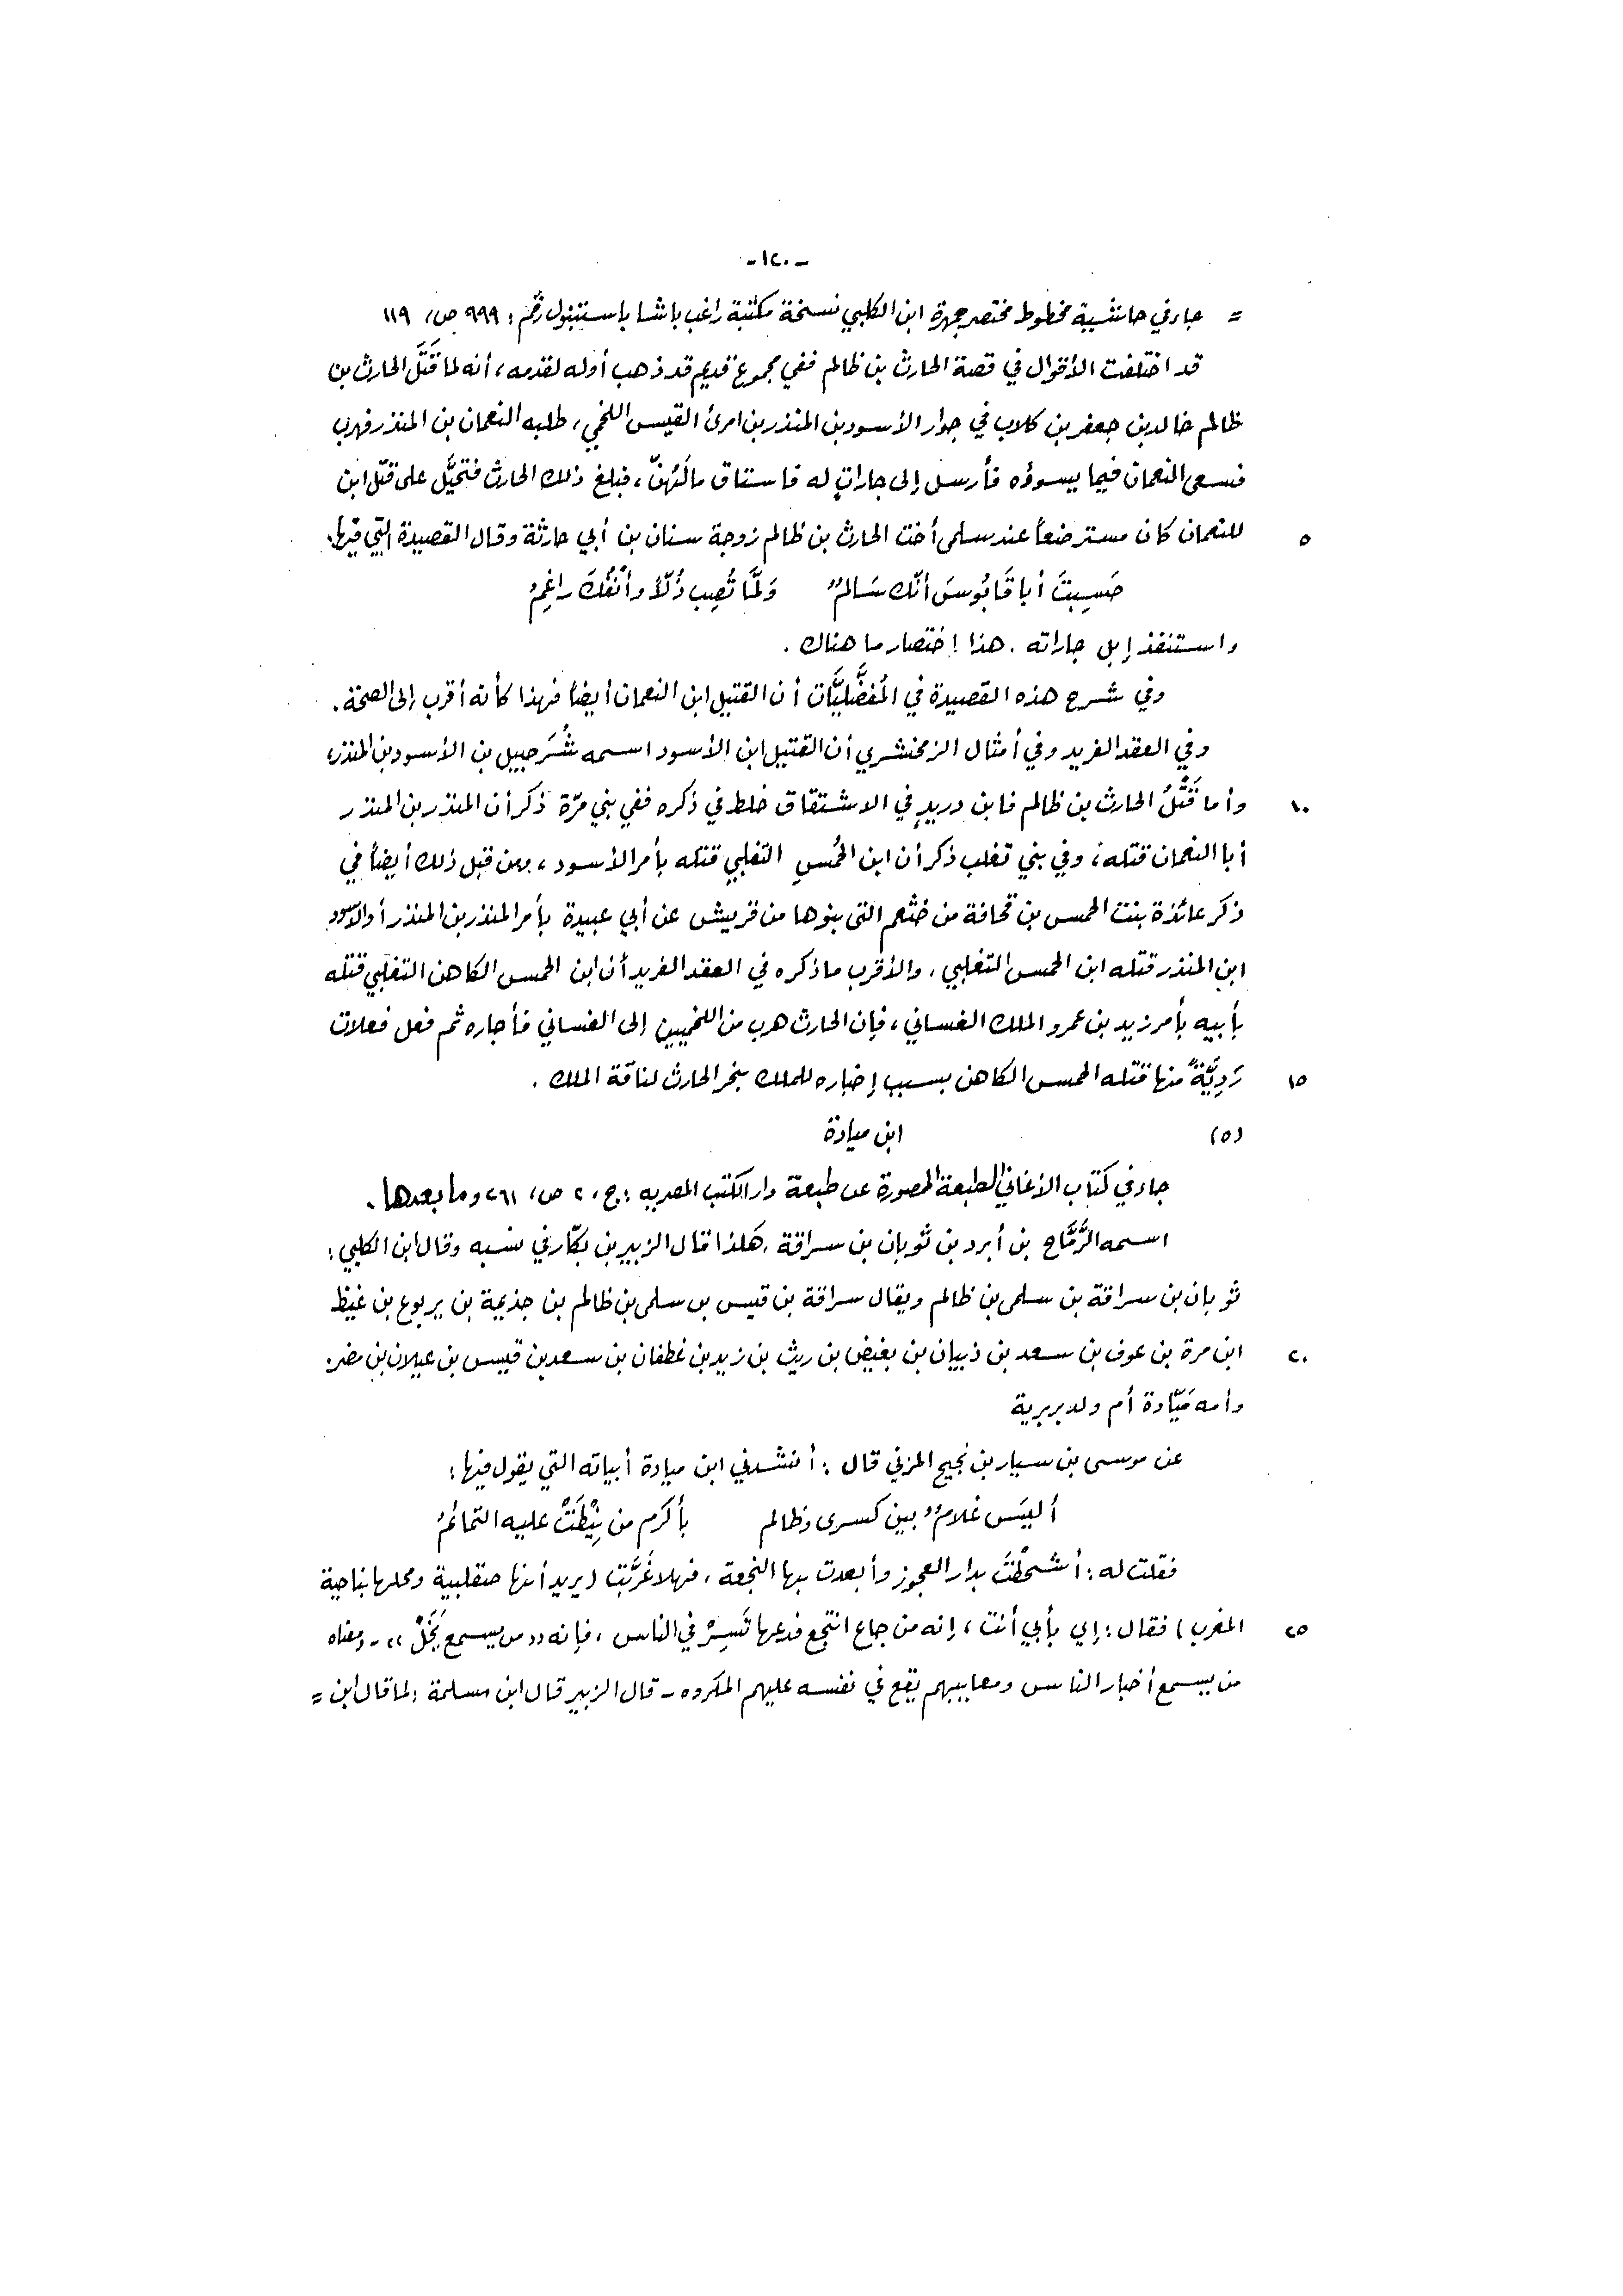 -١٢٠-
= جاء في حاشية مخطوط مختصر جمهرة ابن الكلبي نسخة مكتبة راغب باشا باستنبول رقم: ٩٩٩ ص، ١١٩
قد اختلفت الأقوال في قصة الحارث بن ظالم ففي مجموع قديم قد ذهب أوله لقدمه، أنه لما قَتَلَ الحارث بن
ظالم خالد بن جعفر بن كلاب في جوار الأسود بن المنذر بن امرئ القيس اللخمي، طلبه النعمان بن المنذر فهرب
فسعى النعمان فيما يسوؤه فأرسل إلى جاراتٍ له فاستاق مالَهُنّ، فبلغ ذلك الحارث فتحيَّل على قتل ابن
٥ للنعمان كان مسترضعاً عند سلمى أخت الحارث بن ظالم زوجة سنان بن أبي حارثة وقال القصيدة التي فيها:
حَسِبتَ أبا قَابُوسَ أنّك سَالمٌ وَلَمَّا تُصِب ذُلّاً وأنْفُكَ راغِمُ
واستنفذ إبل جاراته. هذا اختصار ما هناك.
وفي شرح هذه القصيدة في المُفضَّليَّات أن القتيل ابن النعمان أيضاً فهذا كأنه أقرب إلى الصحّة.
وفي العقد الفريد وفي أمثال الزمخشري أن القتيل ابن الأسود اسمه شُرَحبيل بن الأسود بن المنذر،
١٠ وأما قَتْلُ الحارث بن ظالم فابن دريدٍ في الاشتقاق خلط في ذكره ففي بني مرّة ذكر أن المنذر بن المنذر
أبا النعمان قتله، وفي بني تغلب ذكر أن ابن الخُمسِ التغلبي قتله بأمر الأسود، ومن قبل ذلك أيضاً في
ذكر عائذة بنت الخمس بن قحافة من خثعم التى بنوها من قريش عن أبي عبيدة بأمر المنذر بن المنذر أو الأسود
ابن المنذر قتله ابن الخمس التغلبي، والأقرب ما ذكره في العقد الفريد أن ابن الخمس الكاهن التغلبي قتله
بأبيه بأمر زيد بن عمرو الملك الغساني، فإن الحارث هرب من اللخميين إلى الغساني فأجاره ثم فعل فعلات
١٥ رَدِيَّةً منها قتله الخمس الكاهن بسبب إخباره للملك بنحر الحارث لناقة الملك.
(٥) ابن ميادة
جاء في كتاب الأغاني الطبعة المصورة عن طبعة دار الكتب المصريه: ج، ٢ ص، ٢٦١ وما بعدها.
اسمه الرَّمَّاح بن أبرد بن ثوبان بن سراقة، هكذا قال الزبير بن بكّار في نسبه وقال ابن الكلبي:
ثوبان بن سراقة بن سلمى بن ظالم ويقال سراقة بن قيس بن سلمى بن ظالم بن جذيمة بن يربوع بن غيظ
٢٠ ابن مرة بن عوف بن سعد بن ذبيان بن بغيض بن ريث بن زيد بن غطفان بن سعد بن قيس بن عيلان بن مضر.
وأمه مَيّادة أم ولد بربرية
عن موسى بن سيار بن نجيح المزني قال: أنشدني ابن ميادة أبياته التي يقول فيها:
أليَس غلامٌ بين كسرى وظالم بأكرم من نِيْطَتْ عليه التمائمُ
فقلت له: أشحطْتَ بدار العجوز وأبعدت بها النجعة، فهلا غَرَّبتَ (يريد أنها صقلبية ومحلها بناحية
٢٥ المغرب) فقال: إي بأبي أنت، إنه من جاع انتجع فدعها تَسِرْ في الناس، فإنه «من يسمع يَخَلْ» - ومعناه
من يسمع أخبار الناس ومعايبهم يقع في نفسه عليهم المكروه - قال الزبير قال ابن مسلمة: لما قال ابن =